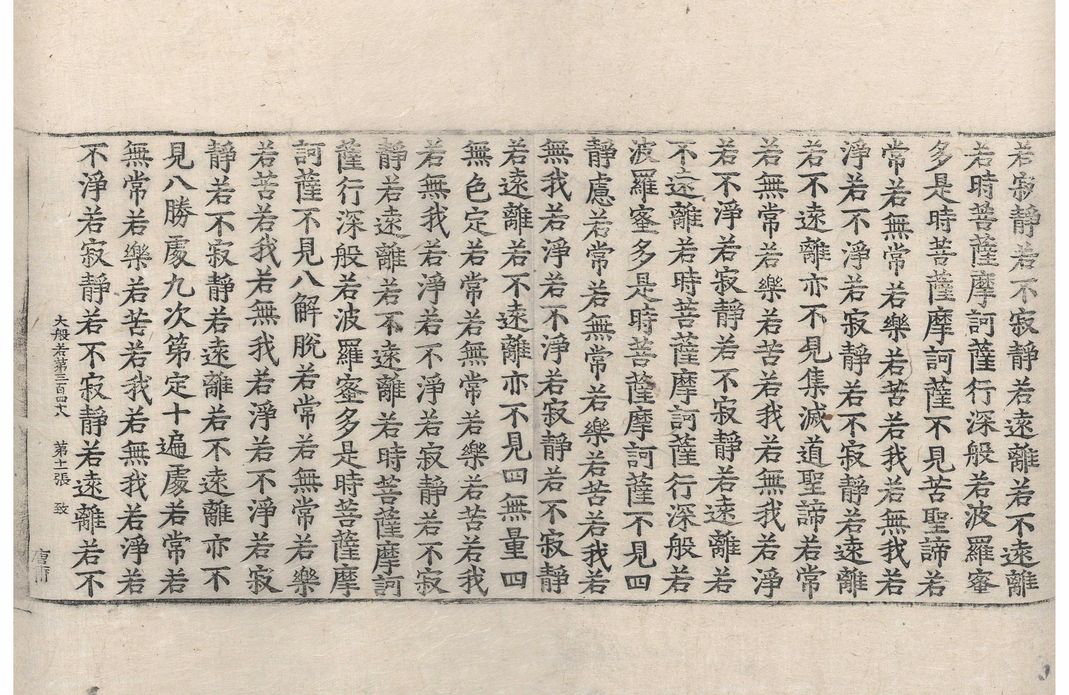 若寂靜若不寂靜若遠離若不遠離
若時菩薩摩訶薩行深般若波羅蜜
多是時菩薩摩訶薩不見苦聖諦若
常若無常若樂若苦若我若無我若
淨若不淨若寂靜若不寂靜若遠離
若不遠離亦不見集滅道聖諦若常
若無常若樂若苦若我若無我若淨
若不淨若寂靜若不寂靜若遠離若
不遠離若時菩薩摩訶薩行深般若
波羅蜜多是時菩薩摩訶薩不見四
靜慮若常若無常若樂若苦若我若
無我若淨若不淨若寂靜若不寂靜
若遠離若不遠離亦不見四無量四
無色定若常若無常若樂若苦若我
若無我若淨若不淨若寂靜若不寂
靜若遠離若不遠離若時菩薩摩訶
薩行深般若波羅蜜多是時菩薩摩
訶薩不見八解脫若常若無常若樂
若苦若我若無我若淨若不淨若寂
靜若不寂靜若遠離若不遠離亦不
見八勝處九次第定十遍處若常若
無常若樂若苦若我若無我若淨若
不淨若寂靜若不寂靜若遠離若不
大般若第三百四 第十一張 致